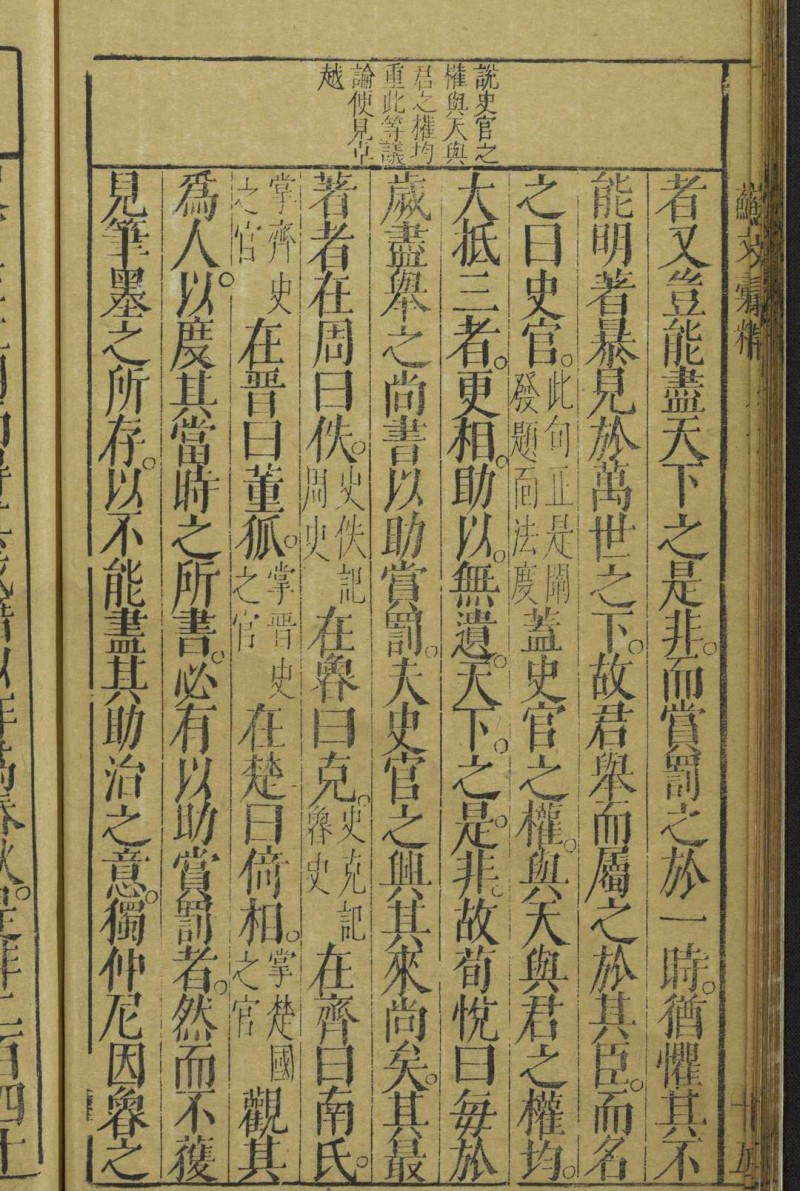 說史官之
權與天與
君之權均
重此等議
論便見卓
越
者又豈能盡天下之是非。而賞罰之於一時。猶懼其不
能明著暴見於萬世之下。故君舉而屬之於其臣。而名
之曰史官。此句正是闡發題面法度蓋史官之權。與天與君之權均。
大抵三者。更相。助以。無遺。天下。之是。非。故荀悅曰每於
歲盡舉之尚書以助賞罰。夫史官之興其來尚矣。其最
著者在周曰佚。史佚記周史在魯曰克。史克記魯史在齊曰南氏。
掌齊史之官在晋曰董狐。掌晋史之官在楚曰倚相。掌楚國之官觀其
爲人。以度其當時之所書。必有以助賞罰者。然而不獲
見筆墨之所存。以不能盡其助治之意。獨仲尼因魯之